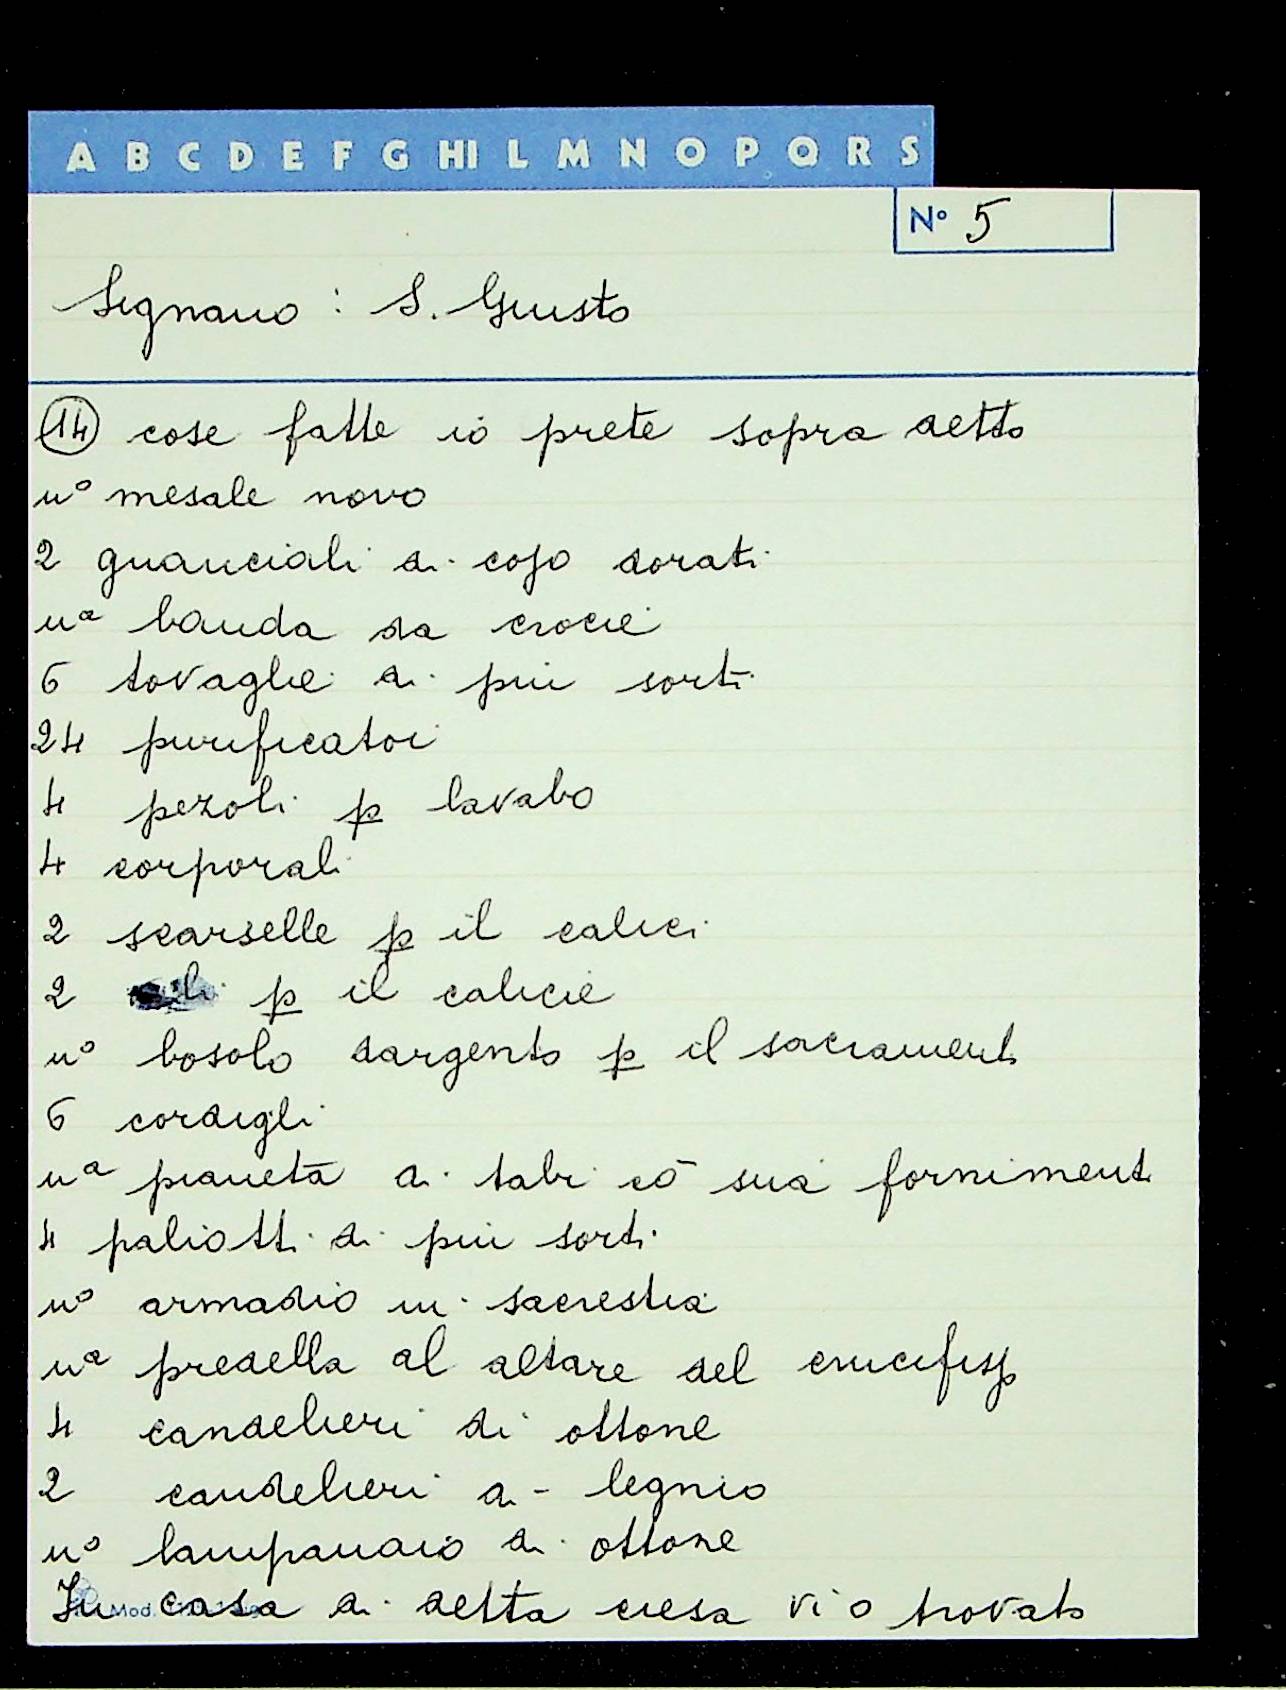 A B C D E F G HI L M N O P Q R S
N° 5
Signano : S. Giusto
(14) cose fatte io prete sopra detto
n° mesale novo
2 guanciali di cojo dorati
nª banda da crocie
6 tovaglie di piu sorti
24 purificatoi
4 pezoli p lavabo
4 corporali
2 scarselle p il calici
2 p il calicie
n° bosolo dargento p il sacrament
6 cordigli
nª pianeta di tabi cō sua forniment
4 paliotti di piu sorti
n° armadio in sacrestia
nª predella al altare del crucifiso
4 candelieri di ottone
2 candelieri di legnio
n° lampanaio di ottone
In casa di detta ciesa vi o trovato
Mod.